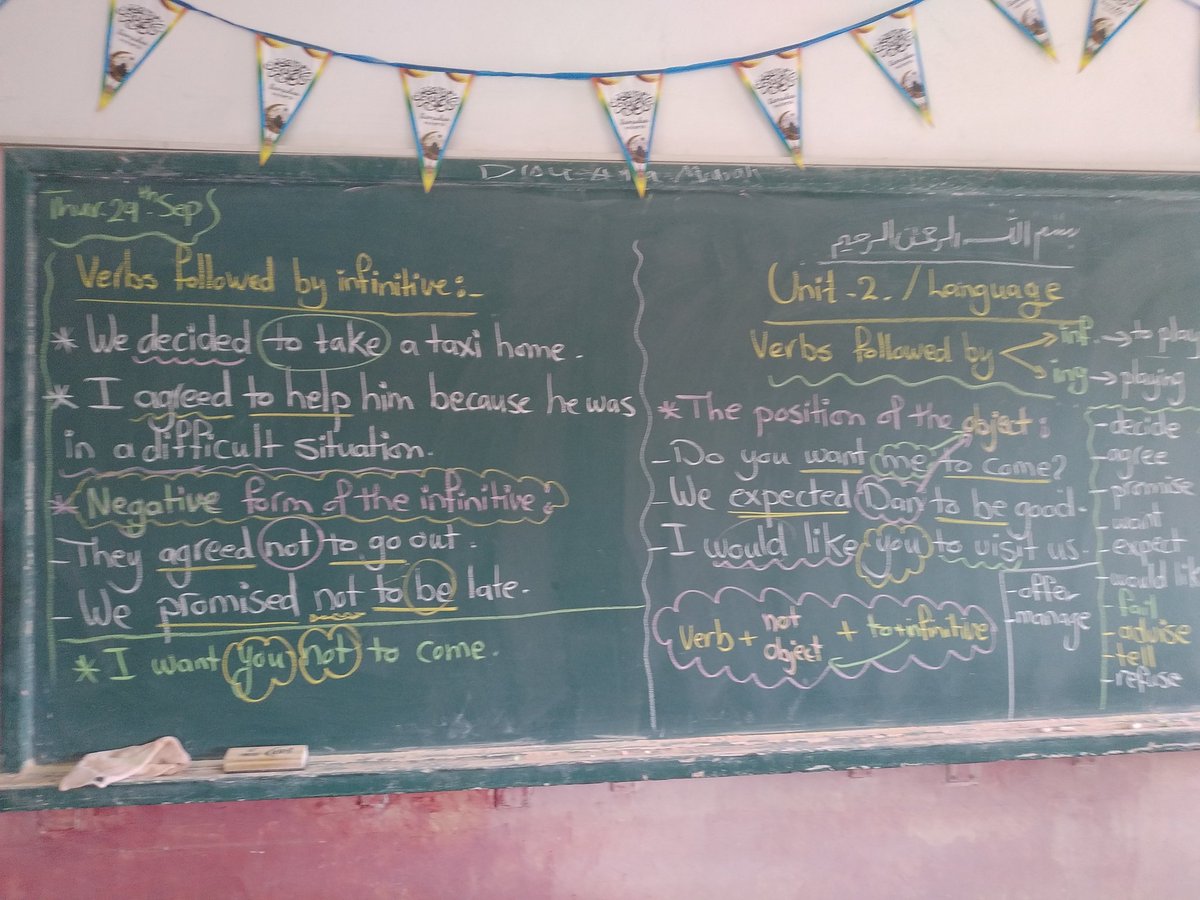 Thur. 29th. Sep
Verbs followed by infinitive:-
* We decided to take a taxi home.
* I agreed to help him because he was
in a difficult situation.
* Negative form of the infinitive:
- They agreed not to go out.
- We promised not to be late.
* I want you not to come.
بسم الله الرحمن الرحيم
Unit - 2. / Language
Verbs followed by
inf. → to play
ing → playing
* The position of the object:
- Do you want me to come?
- We expected Dan to be good.
- I would like you to visit us.
Verb + not object + to + infinitive
- offer
- manage
- decide
- agree
- promise
- want
- expect
- would like
- fail
- advise
- tell
- refuse